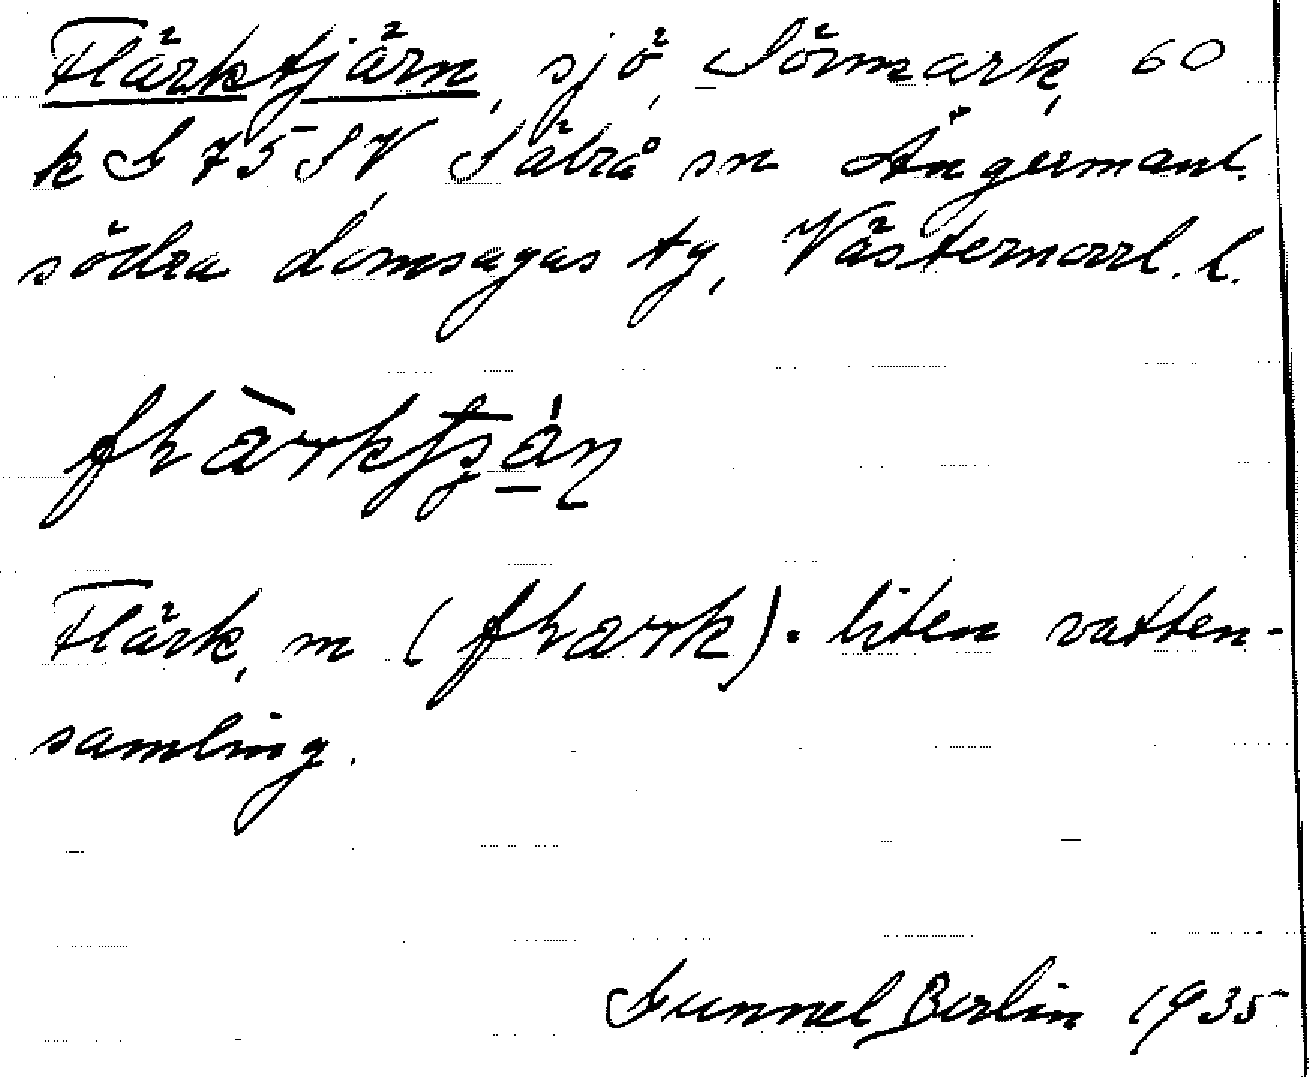 Flärktjärn, sjö, Sörmark, 60
k S 75 SV, Säbrå sn Ångermanl.
södra domsagas tg, Västernorrl. l.
Flärk, m liten vatten-
samling.
Gunnel Berlin 1935